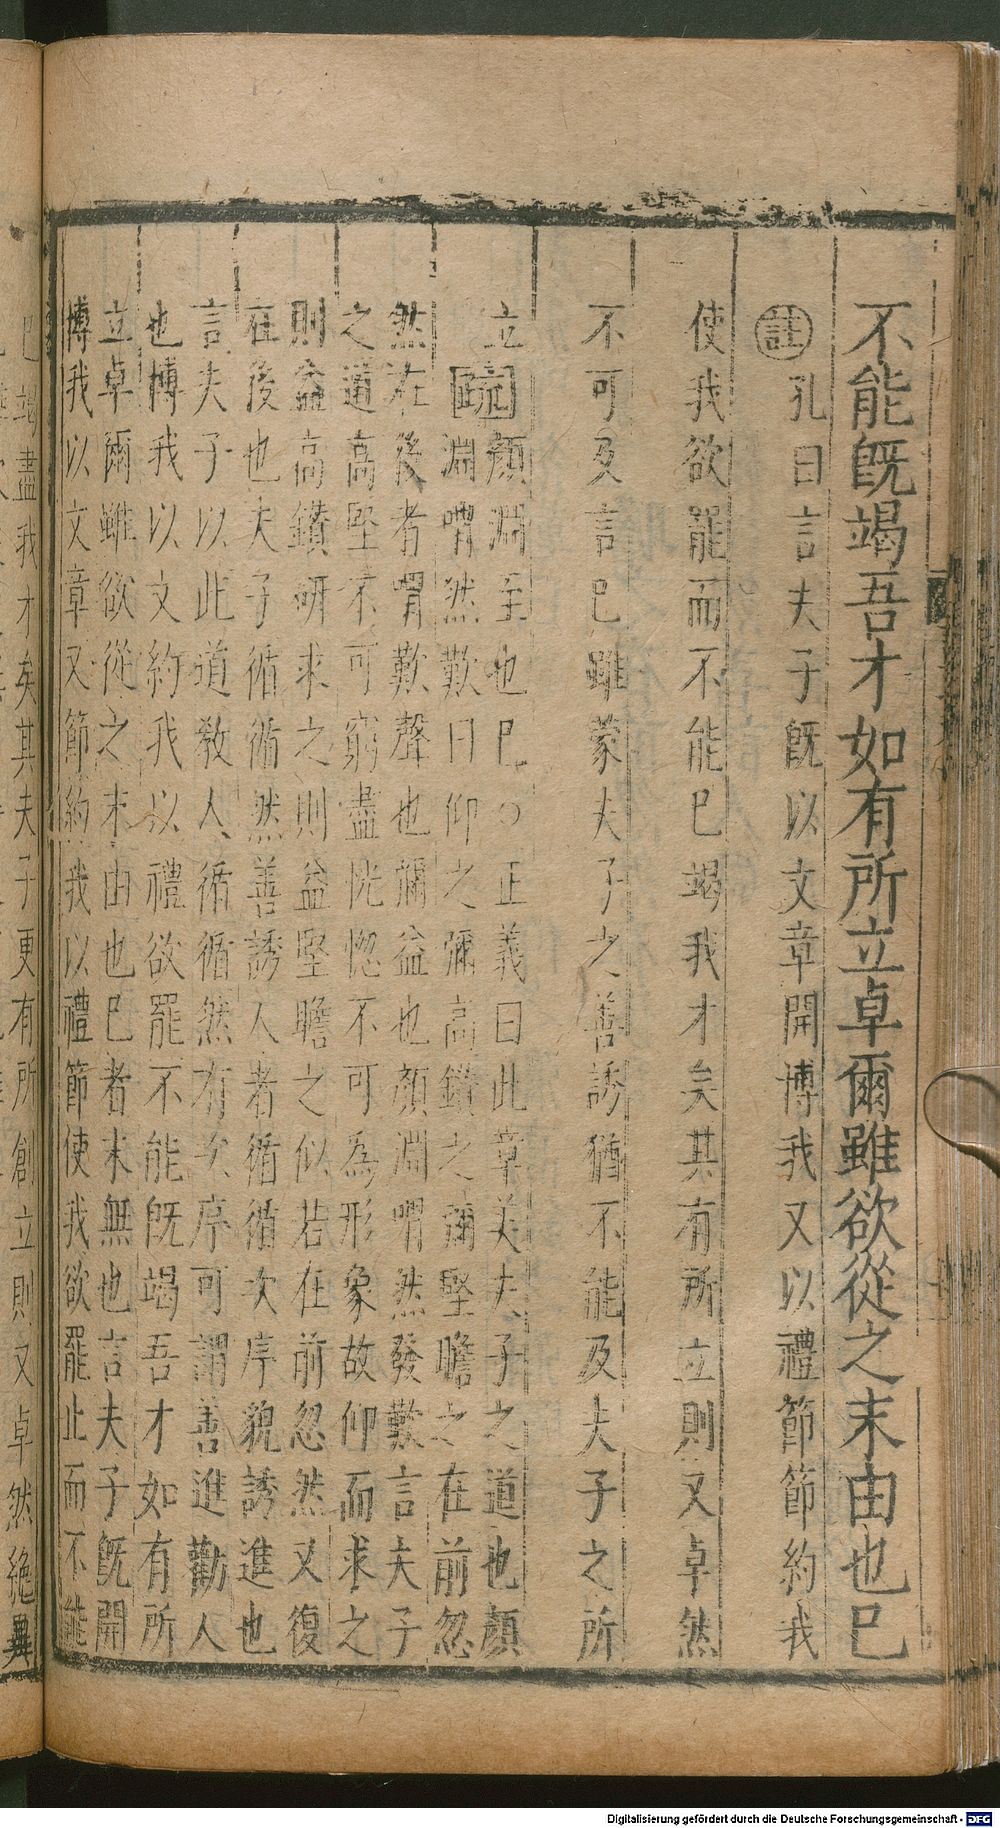 不能既竭吾才如有所立卓爾雖欲從之末由也已
註孔曰言夫子既以文章開博我又以禮節節約我
使我欲罷而不能已竭我才矣其有所立則又卓然
不可及言已雖蒙夫子之善誘猶不能及夫子之所
立
疏顏淵至也已○正義曰此章美夫子之道也顏
淵喟然歎曰仰之彌高鑽之彌堅瞻之在前忽
然在後者喟歎聲也彌益也顏淵喟然發歎言夫子
之道高堅不可窮盡恍惚不可為形象故仰而求之
則益高鑽研求之則益堅瞻之似若在前忽然又復
在後也夫子循循然善誘人者循循次序貌誘進也
言夫子以此道教人循循然有次序可謂善進勸人
也博我以文約我以禮欲罷不能既竭吾才如有所
立卓爾雖欲從之末由也已者末無也言夫子既開
博我以文章又節約我以禮節使我欲罷止而不能
已竭盡我才矣其夫子更有所創立則又卓然絶異
Digitalisierung gefördert durch die Deutsche Forschungsgemeinschaft - DFG